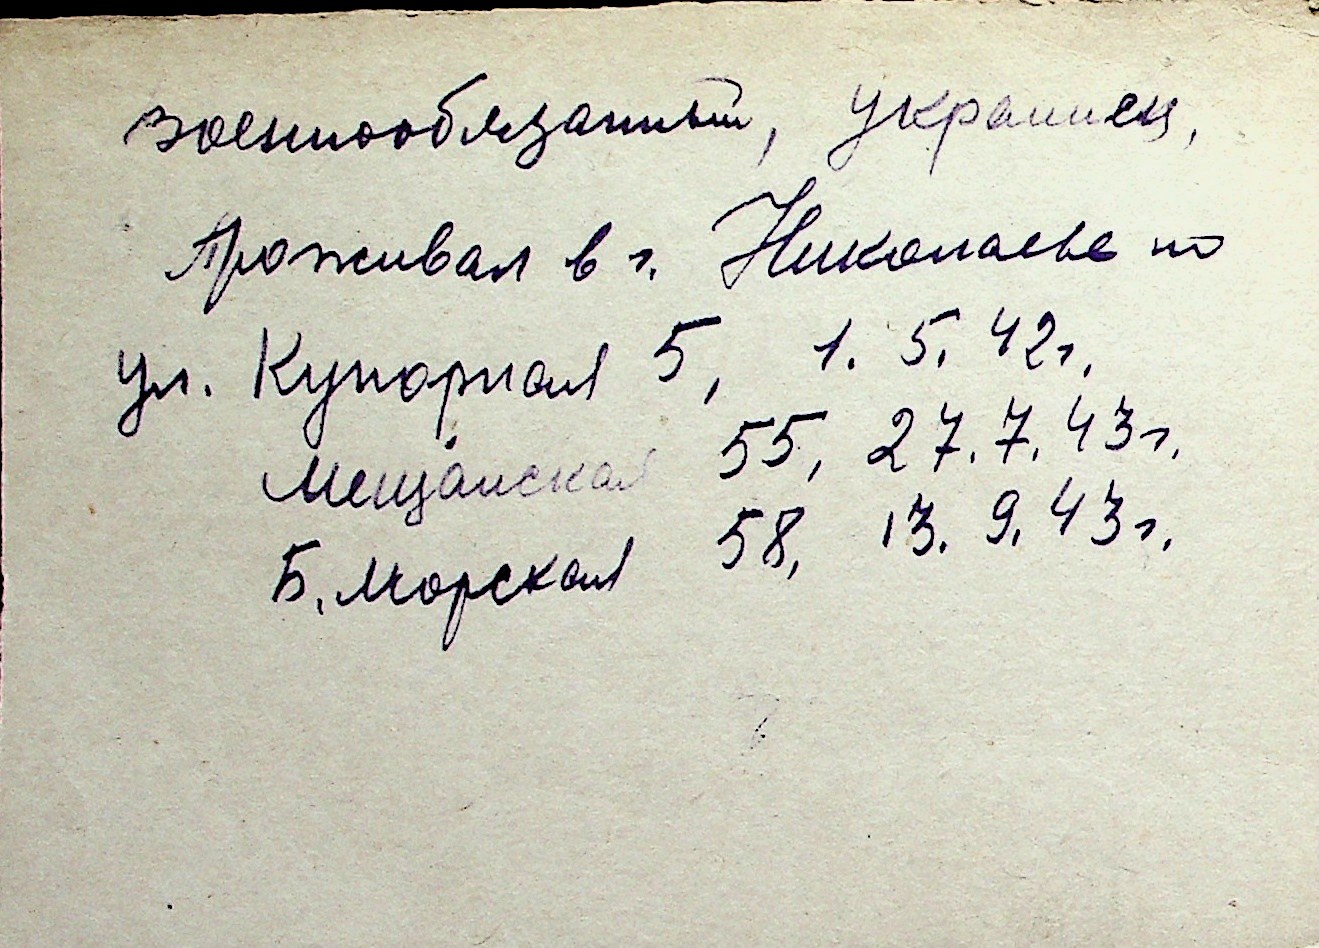 военнообязанный, украинец,
проживал в г. Николаеве по
ул. Купорная 5, 1. 5. 42г.
Мещанская 55, 27. 7. 43г.
Б. Морская 58, 13. 9. 43г.